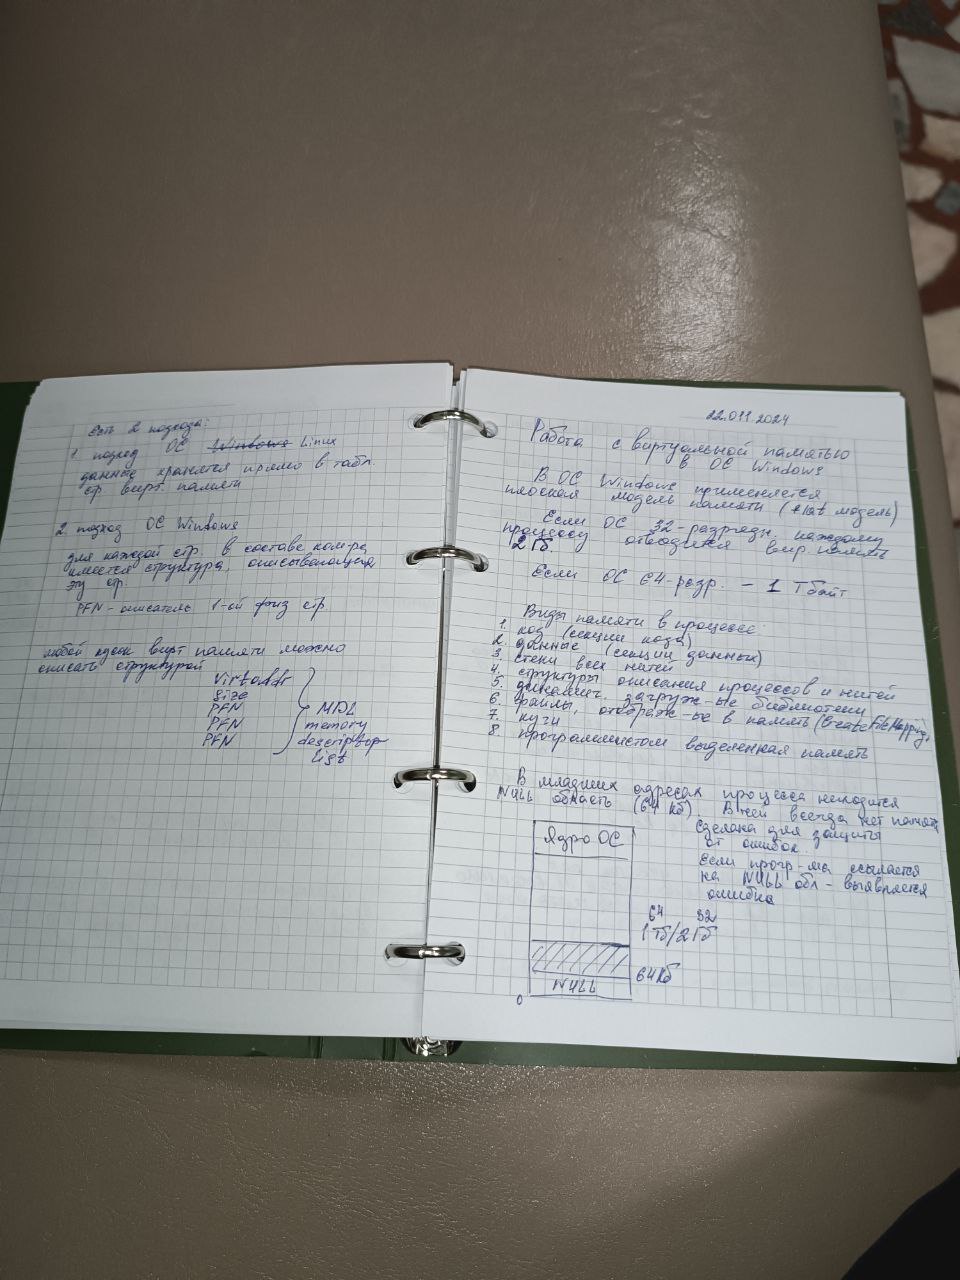 Есть 2 подхода:
1. подход ОС Windows Linux
данные хранятся прямо в табл.
стр. вирт. памяти
2. подход ОС Windows
для каждой стр. в составе ком-ра
имеется структура, описывающая
эту стр.
PFN - описатель 1-ой физ стр
любой кусок вирт памяти можно
описать структурой
VirtAddr
size
PFN
PFN
PFN
MDL
memory
descriptor
list
22.011.2024
Работа с виртуальной памятью
в ОС Windows
В ОС Windows применяется
плоская модель памяти (flat модель)
Если ОС 32-разрядн, каждому
процессу отводится вир. память
2 Гб.
Если ОС 64-разр. - 1 Тбайт
Виды памяти в процессе:
1. код (секции кода)
2. данные (секции данных)
3. стеки всех нитей
4. структуры описания процессов и нитей
5. динамич. загруж-ые библиотеки
6. файлы, отображ-ые в память (CreateFileMapping)
7. кучи
8. программистом выделенная память
В младших адресах процесса находится
NULL область (64 Кб). В ней всегда нет памяти
Сделана для защиты
от ошибок.
Если прогр-ма ссылается
на NULL обл - выявляется
ошибка
Ядро ОС
64 32
1 Тб/2 Гб
64 Кб
NULL
0